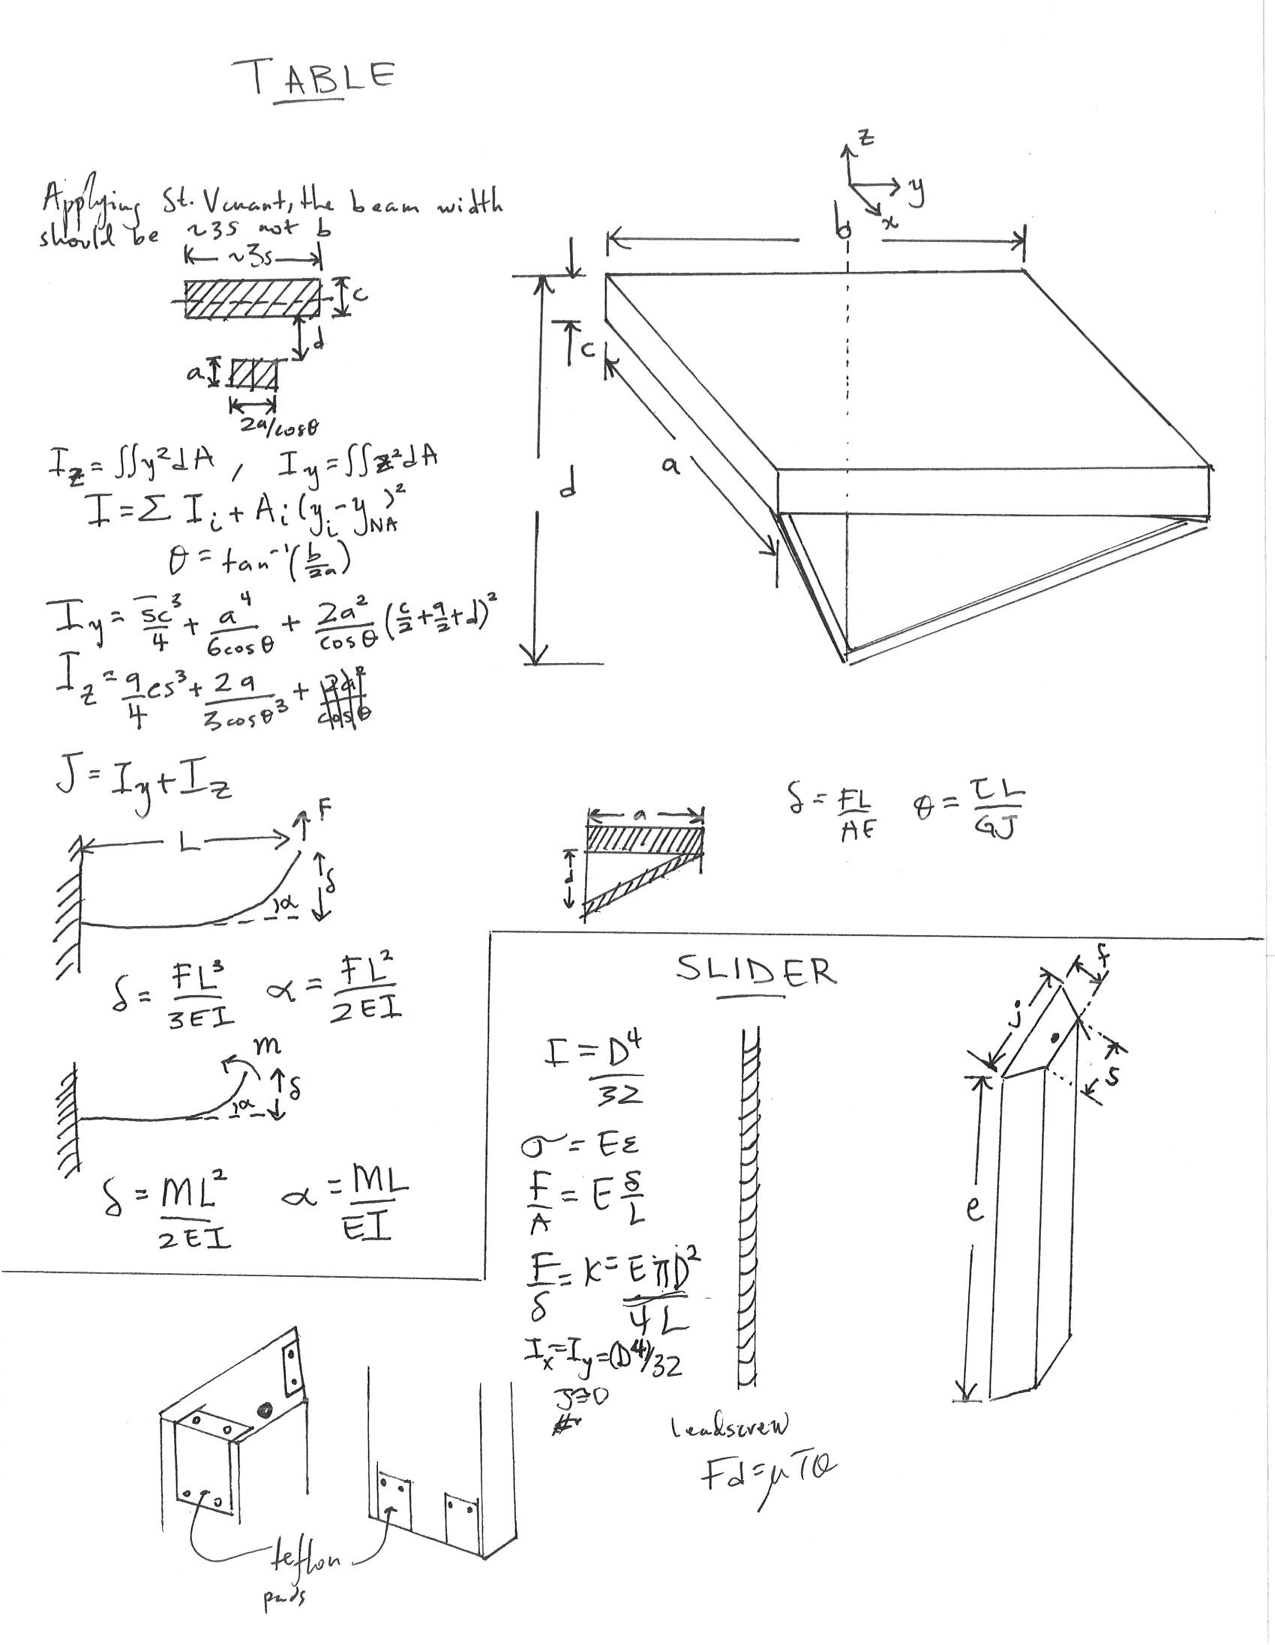 TABLE
Applying St. Venant, the beam width
should be ~3s not b
~3s
c
d
a
2a/cosθ
I_z = ∬y²dA , I_y = ∬z²dA
I = Σ I_i + A_i(y_i - y_NA)²
θ = tan⁻¹(b/2a)
I_y = sc³/4 + a⁴/6cosθ + 2a²/cosθ (c/2 + a/2 + d)²
I_z = 9/4 cs³ + 2a/3cosθ³ +
J = I_y + I_z
L
F
δ
α
δ = FL³/3EI α = FL²/2EI
m
δ
α
δ = ML²/2EI α = ML/EI
z
y
x
b
c
a
d
a
d
δ = FL/AE θ = τL/GJ
SLIDER
I = D⁴/32
σ = Eε
F/A = E δ/L
F/δ = K = EπD²/4L
I_x = I_y = (D⁴)/32
J≅0
leadscrew
Fd = μTθ
f
j
s
e
teflon
pads